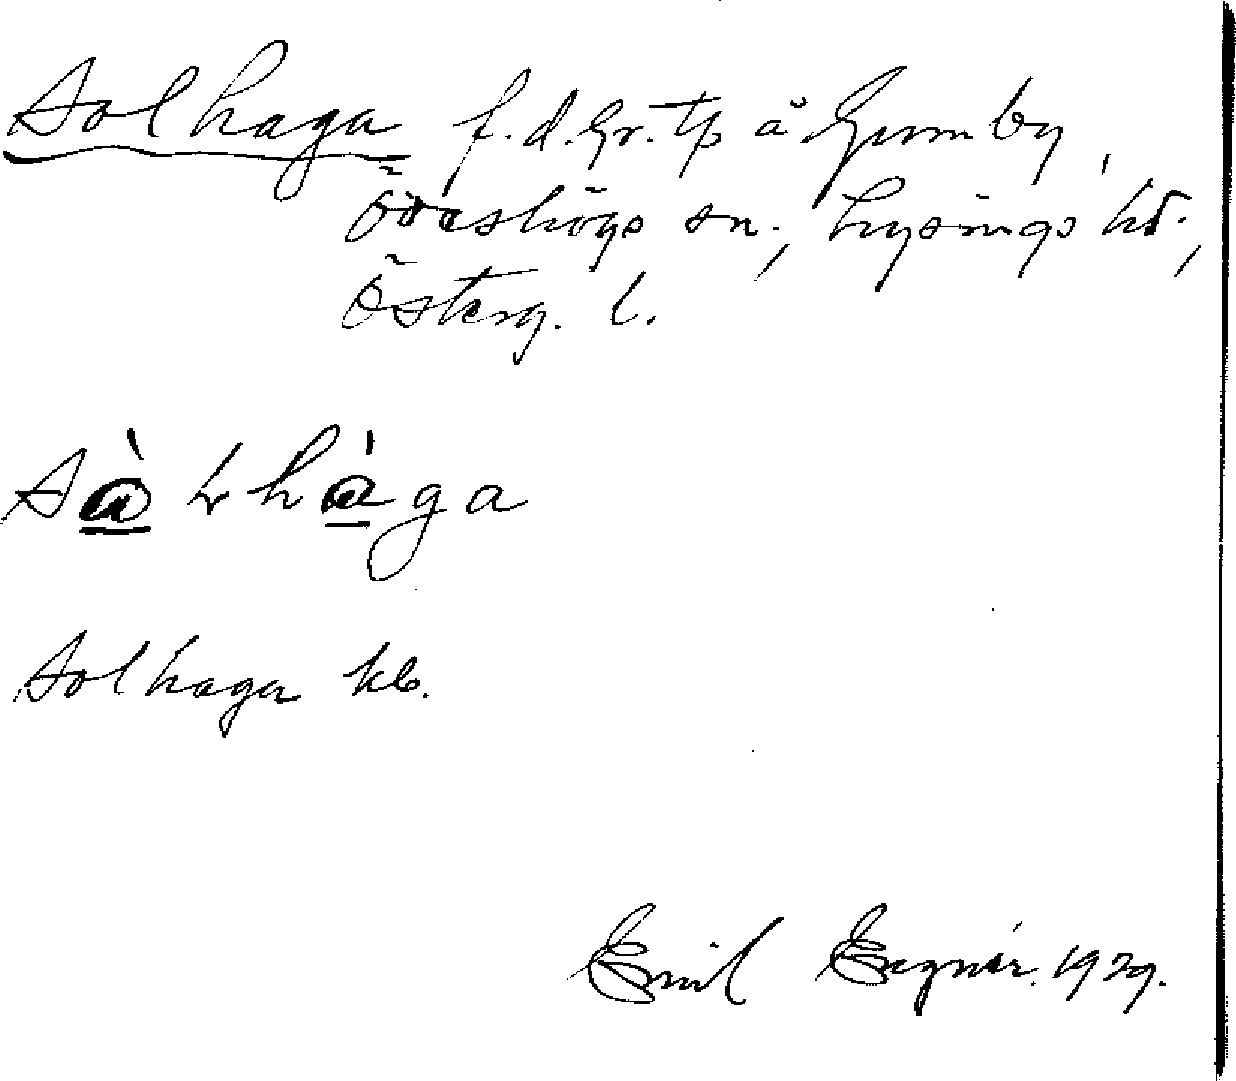 Solhaga f. d. gr. tp å Gumby,
Ödeshögs sn., Lysings hd.,
Österg. l.
Solhaga kb.
Emil 1929.